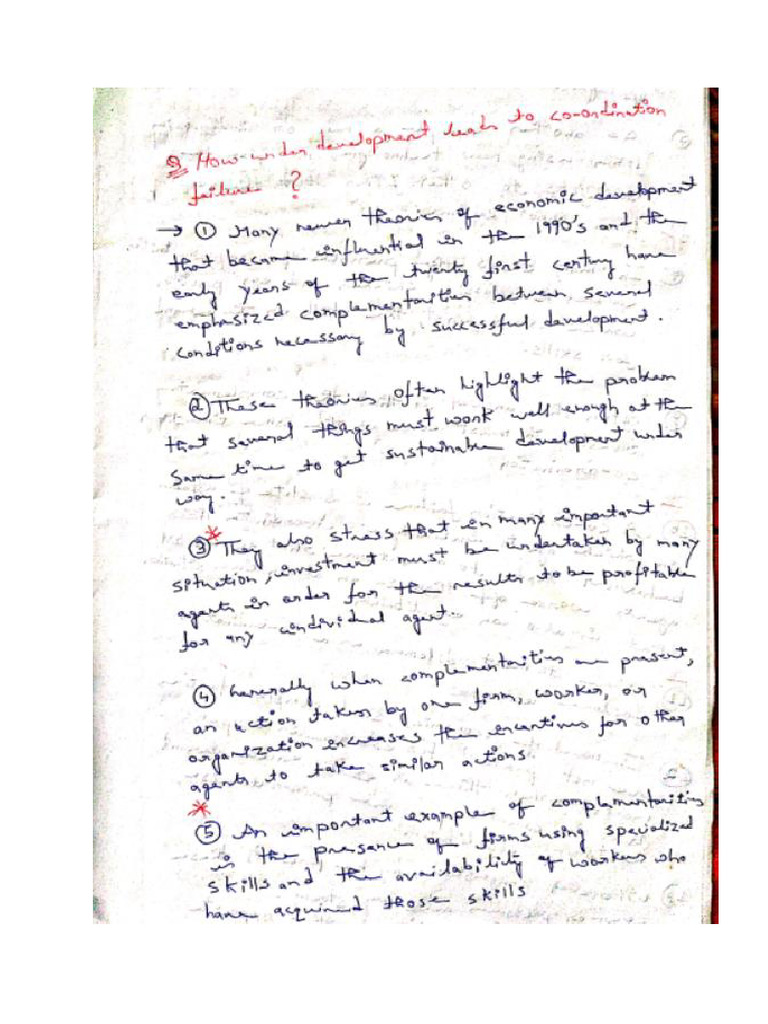 Q How under development leads to co-ordination
failure ?
→ ① Many newer theories of economic development
that became influential in the 1990's and the
early years of the twenty first century have
emphasized complementarities between several
conditions necessary by successful development.
② These theories often highlight the problem
that several things must work well enough at the
same time to get sustainable development under
way.
③ They also stress that in many important
situation, investment must be undertaken by many
agents in order for the results to be profitable
for any individual agent.
④ Generally when complementarities are present,
an action taken by one firm, worker, or
organization increases the incentives for other
agents to take similar actions.
⑤ An important example of complementarities
is the presence of firms using specialized
skills and the availability of workers who
have acquired those skills